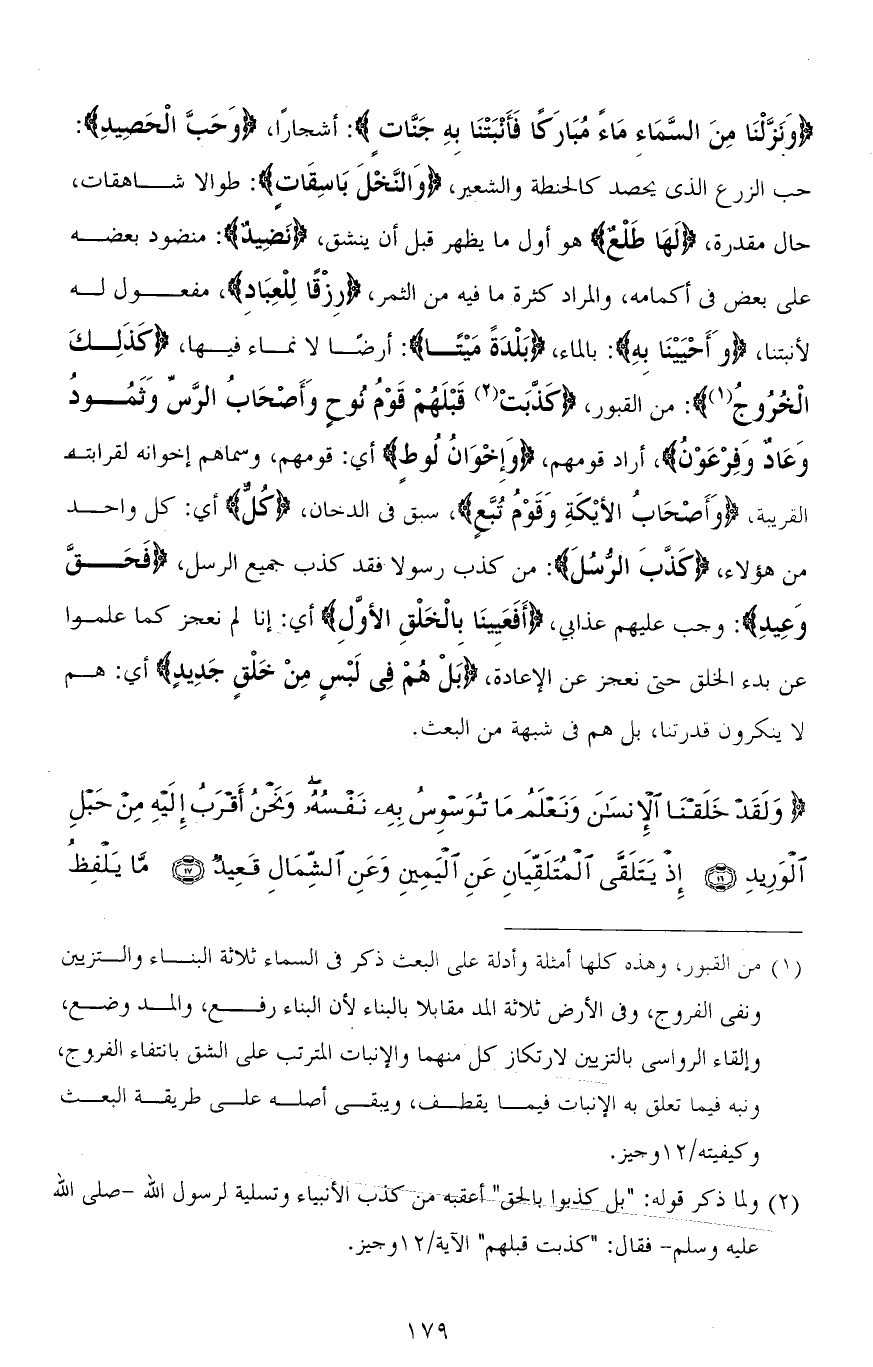 ﴿وَنَزَّلْنَا مِنَ السَّمَاءِ مَاءً مُبَارَكًا فَأَنْبَتْنَا بِهِ جَنَّاتٍ ﴾: أشجارًا، ﴿وَحَبَّ الْحَصِيدِ﴾:
حب الزرع الذى يحصد كالحنطة والشعير، ﴿وَالنَّخْلَ بَاسِقَاتٍ﴾: طوالا شـاهقات،
حال مقدرة، ﴿لَهَا طَلْعٌ﴾ هو أول ما يظهر قبل أن ينشق، ﴿نَضِيدٌ﴾: منضود بعضه
على بعض فى أكمامه، والمراد كثرة ما فيه من الثمر، ﴿رِزْقًا لِلْعِبَادِ﴾، مفعول له
لأنبتنا، ﴿وأَحْيَيْنَا بِهِ﴾: بالماء، ﴿بَلْدَةً مَيْتًا﴾: أرضًا لا نماء فيها، ﴿كَذَلِكَ
الْخُرُوجُ(١)﴾: من القبور، ﴿كَذَّبَتْ(٢) قَبْلَهُمْ قَوْمُ نُوحٍ وأَصْحَابُ الرَّسِّ وَثَمُودُ
وَعَادٌ وَفِرْعَوْنُ﴾، أراد قومهم، ﴿وَإِخْوَانُ لُوطٍ﴾ أي: قومهم، وسماهم إخوانه لقرابته
القريبة، ﴿وَأَصْحَابُ الأَيْكَةِ وَقَوْمُ تُبَّعٍ﴾، سبق فى الدخان، ﴿كُلٌّ﴾ أي: كل واحد
من هؤلاء، ﴿كَذَّبَ الرُّسُلَ﴾: من كذب رسولا فقد كذب جميع الرسل، ﴿فَحَقَّ
وَعِيدِ﴾: وجب عليهم عذابي، ﴿أَفَعَيِينَا بِالْخَلْقِ الأَوَّلِ﴾ أي: إنا لم نعجز كما علموا
عن بدء الخلق حتى نعجز عن الإعادة، ﴿بَلْ هُمْ فِى لَبْسٍ مِنْ خَلْقٍ جَدِيدٍ﴾ أي: هم
لا ينكرون قدرتنا، بل هم فى شبهة من البعث.
﴿ وَلَقَدْ خَلَقْنَا ٱلْإِنسَـٰنَ وَنَعْلَمُ مَا تُوَسْوِسُ بِهِۦ نَفْسُهُۥ ۖ وَنَحْنُ أَقْرَبُ إِلَيْهِ مِنْ حَبْلِ
ٱلْوَرِيدِ ١٦ إِذْ يَتَلَقَّى ٱلْمُتَلَقِّيَانِ عَنِ ٱلْيَمِينِ وَعَنِ ٱلشِّمَالِ قَعِيدٌ ١٧ مَّا يَلْفِظُ
(١) من القبور، وهذه كلها أمثلة وأدلة على البعث ذكر فى السماء ثلاثة البناء والتزيين
ونفى الفروج، وفى الأرض ثلاثة المد مقابلا بالبناء لأن البناء رفع، والمد وضع،
وإلقاء الرواسى بالتزيين لارتكاز كل منهما والإنبات المترتب على الشق بانتفاء الفروج،
ونبه فيما تعلق به الإنبات فيما يقطف، ويبقى أصله على طريقة البعث
وكيفيته/١٢وجيز.
(٢) ولما ذكر قوله: "بل كذبوا بالحق" أعقبه من كذب الأنبياء وتسلية لرسول الله –صلى الله
عليه وسلم– فقال: "كذبت قبلهم" الآية/١٢وجيز.
١٧٩